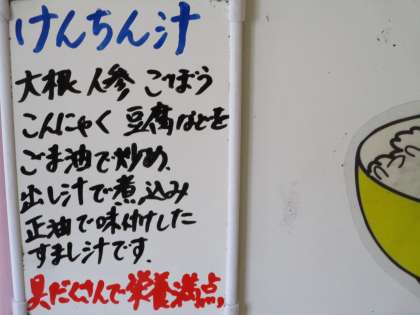 けんちん汁
大根 人参 ごぼう
こんにゃく 豆腐などを
ごま油で炒め、
出し汁で煮込み
正油で味付けした
すまし汁です。
具だくさんで栄養満点。